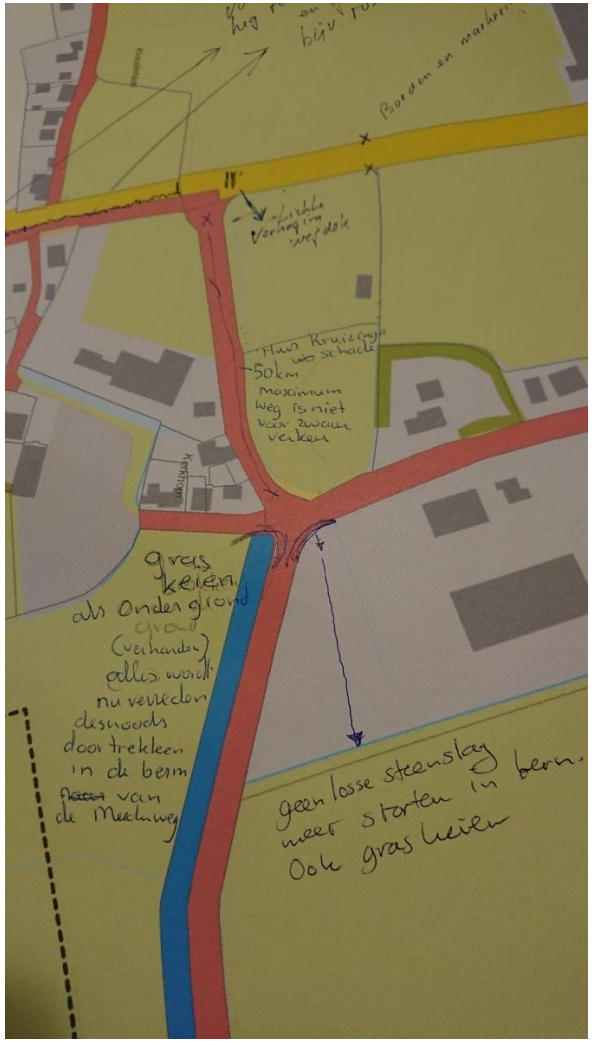 heg
en
bijv.
Borden en
Kloosterlaan
Lichte
verhoging
wegdek
Huis Kruizinga
schade
50km
maximum
weg is niet
voor zwaar
verkeer
Kerkhorn
gras
keien
als Ondergrond
grond
(verharden)
alles wordt
nu verreden
desnoods
doortrekken
in de berm
van
de Meedenweg
geen losse steenslag
meer storten in berm.
Ook graskeien